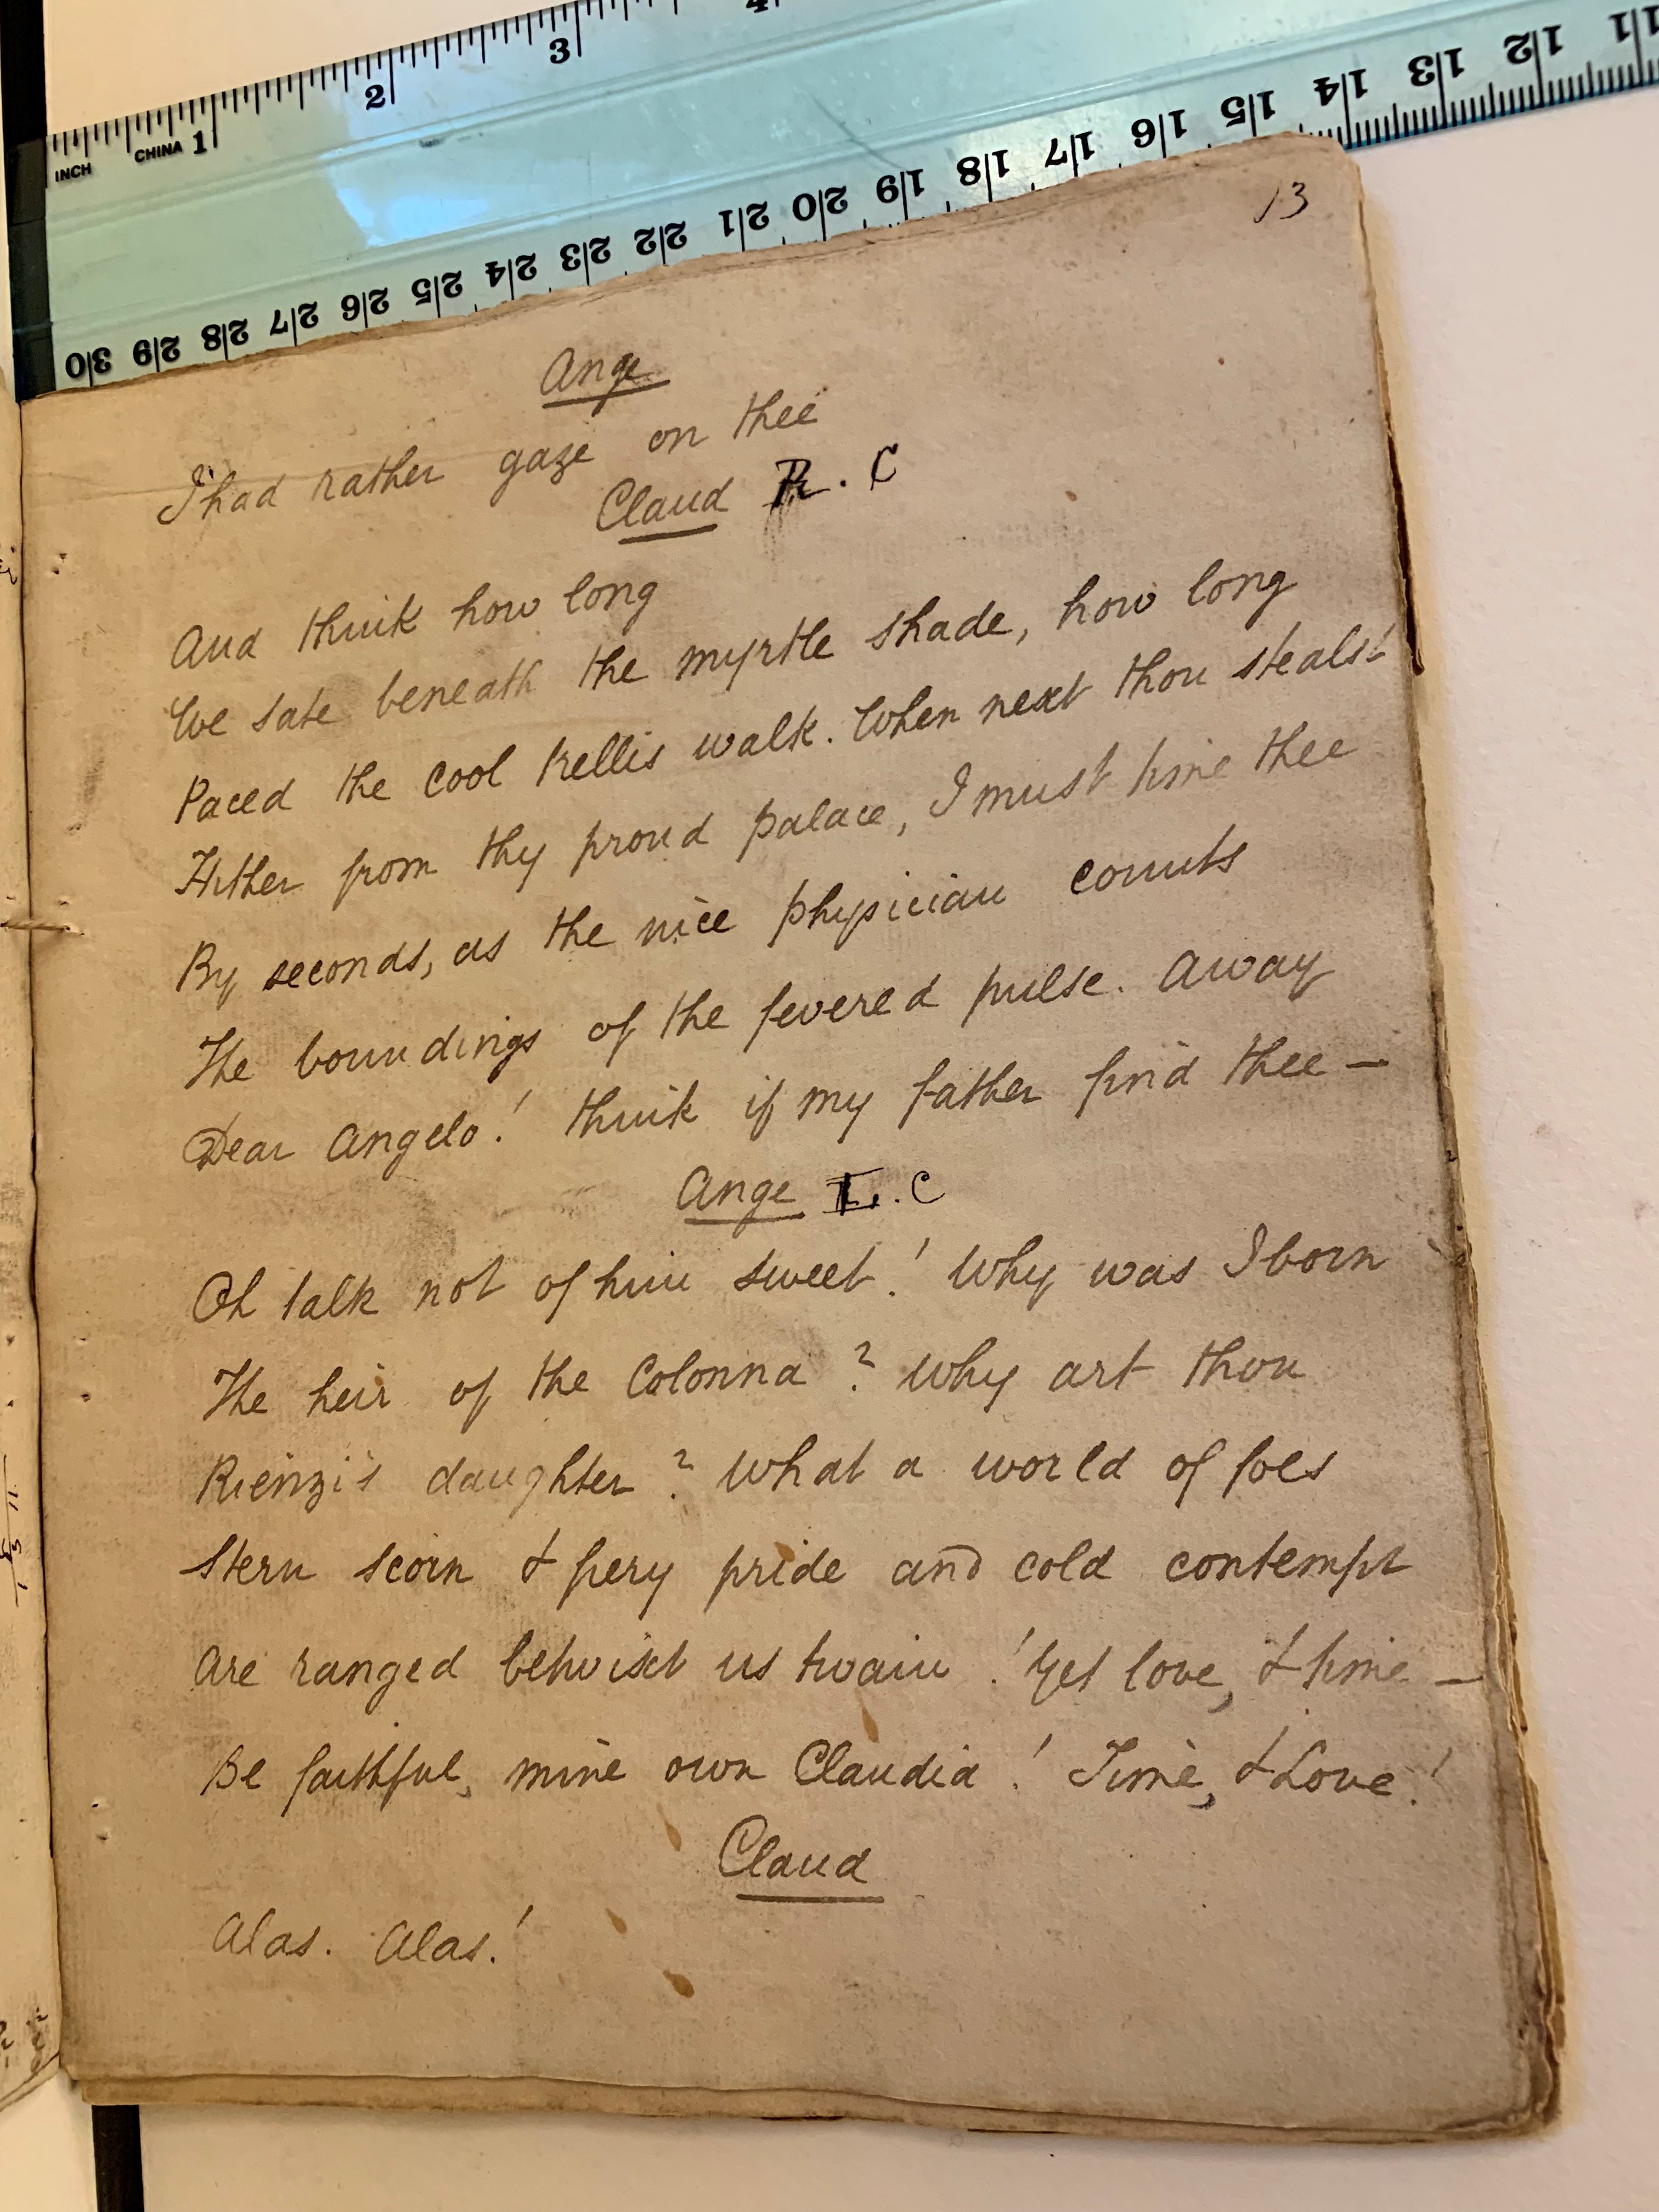 INCH
CHINA 1 2 3 4
30 29 28 27 26 25 24 23 22 21 20 19 18 17 16 15 14 13 12 11
13
Ange
I had rather gaze on thee
Claud R. C
And think how long
We sate beneath the myrtle shade, how long
Paced the cool trellis walk. When next thou stealst
Hither from thy proud palace, I must time thee
By seconds, as the nice physician counts
The boundings of the fevered pulse. Away
Dear Angelo! think if my father find thee —
Ange L. C
Oh talk not of him sweet! Why was I born
The heir of the Colonna? Why art thou
Rienzi's daughter? What a world of foes
Stern scorn & fiery pride and cold contempt
Are ranged betwixt us twain! Yet love, & time —
Be faithful, mine own Claudia! Time, & Love!
Claud
Alas. Alas!